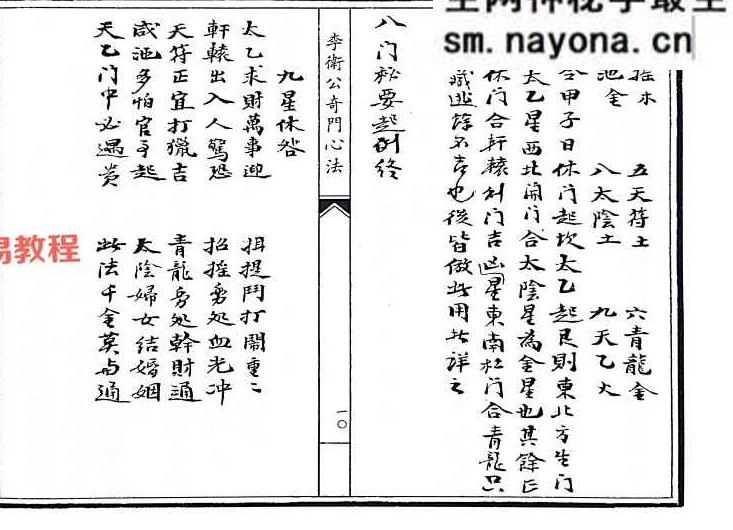 sm.nayona.cn
易教程
摇木 五天符土 六青龍金
池金 八太陰土 九天乙火
合甲子日休门起坎太乙起艮則東北方生门
太乙星西北開门合太陰星為金星也其餘
休门合軒轅 门吉凶星東南杜门合青龍只
餘不吉也後皆倣此用 詳之
八门秘要起例終
李衛公奇門心法
一〇
九星休咎
太乙求財萬事迎 提鬥打鬧重〻
軒轅出入人驚恐 招摇 处血光冲
天符正宜打獵吉 青龍 处幹財通
咸池多怕官事起 太陰婦女結婚姻
天乙门中必遇贵 此法千金莫与通